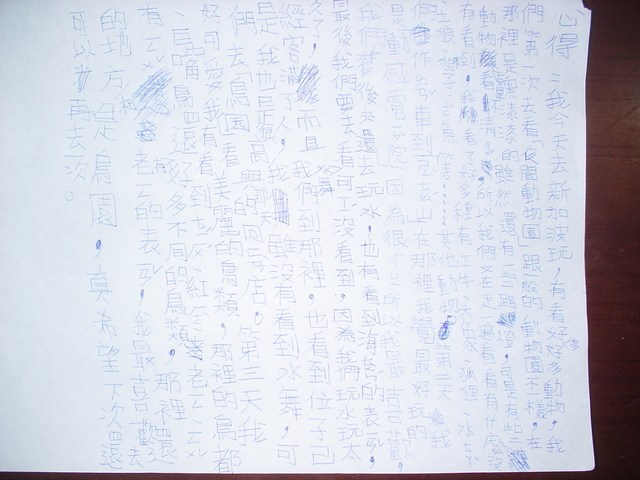 心得:我今天去新加坡玩,有看好多動物,我
們第一次去看「夜間動物園」跟般的動物園不一樣,在
那裡是黑漆漆的雖然還有一些路燈,可是有些
動物看不清楚,所以我們又在走一遍看有什麼沒
有看到,我們看了好多種有土
土狼、猴子、等……其他動物。第二天我
們坐車到在那裡我覺最好玩的
是「動感電影院」因為很所以我最喜歡,
我們後來還去玩水,也有看到海的表ㄧㄢˇ,
最後我們要去看可沒看到,因為我們玩水玩太
久了,而且我們到那裡,也看到位子已
經客滿了人,我雖沒有看到水舞,可
是我也是很高興的回店。第三天我
們去「鳥園」看美麗的鳥類,那裡的鳥都
好可愛我有看到紅
嘴鳥還好多不同的鳥類,那裡還
有老ㄧㄥ的表ㄧㄢˇ,我最喜歡去
的地方是鳥園,真希望下次還
可以再去一次。